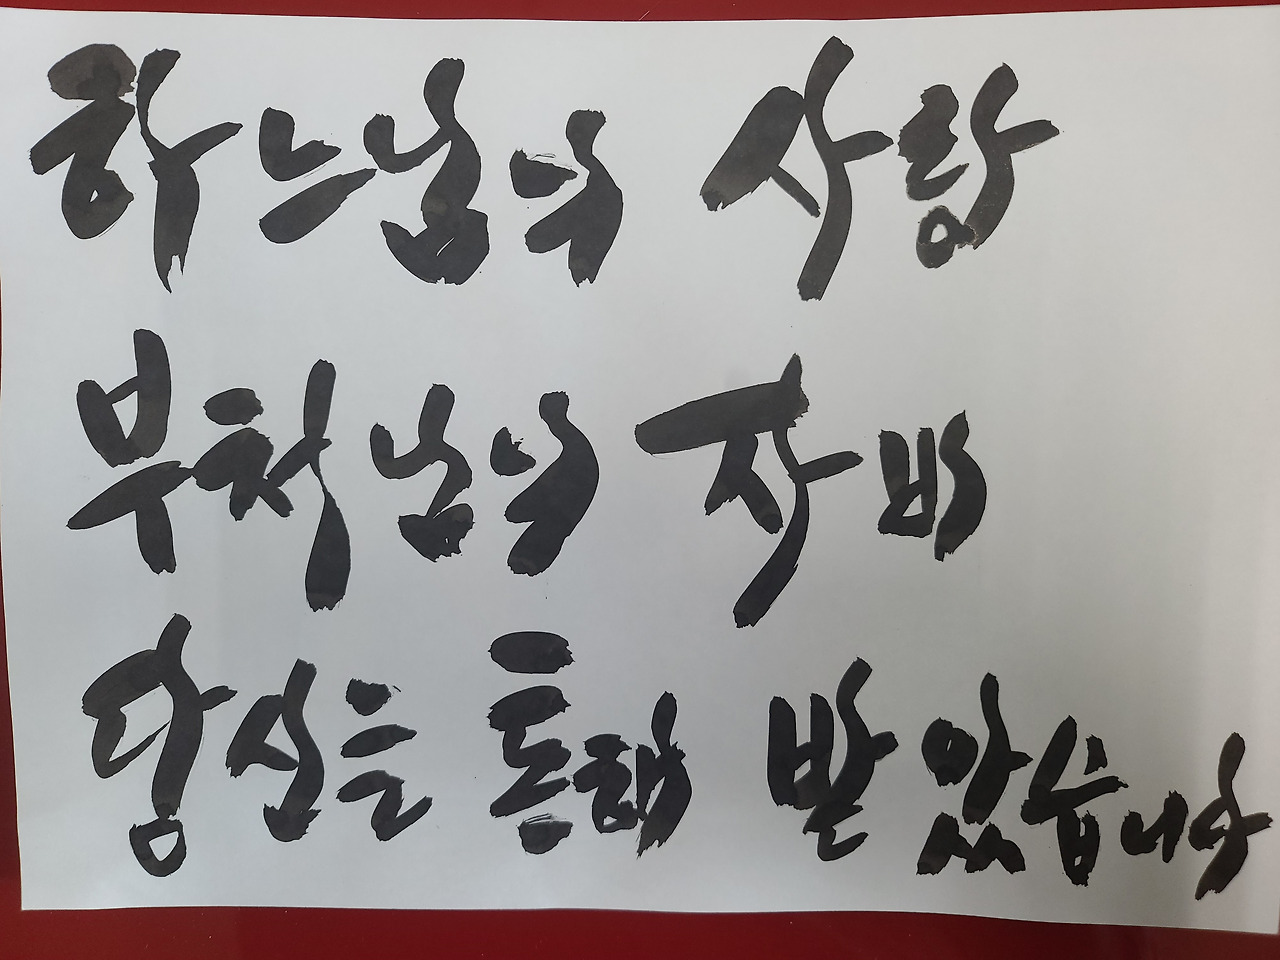 하느님의 사랑
부처님의 자비
당신은 통해 받았습니다